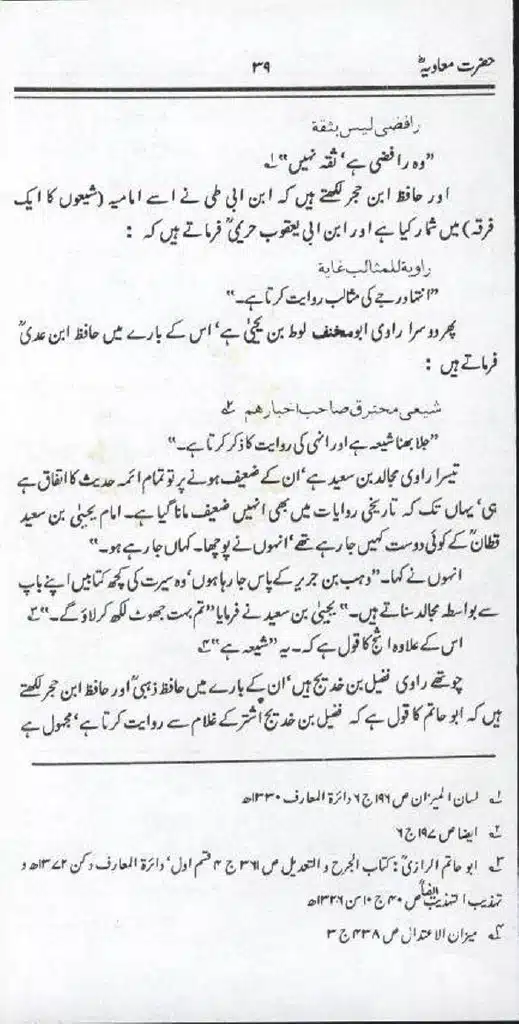 حضرت معاویہؓ ۳۹
رافضی لیس بثقة
”وہ رافضی ہے‘ ثقہ نہیں“ ۱؎
اور حافظ ابن حجر لکھتے ہیں کہ ابن ابی طی نے اسے امامیہ (شیعوں کا ایک
فرقہ) میں شمار کیا ہے اور ابن ابی یعقوب حریمیؒ فرماتے ہیں کہ :
راویة للمثالب غایة
”انتہا درجے کی مثالب روایت کرتا ہے۔“
پھر دوسرا راوی ابو مخنف لوط بن یحییٰ ہے‘ اس کے بارے میں حافظ ابن عدیؒ
فرماتے ہیں :
شیعی محترق صاحب اخبارهم ۲؎
”جلا بھنا شیعہ ہے اور انہی کی روایت کا ذکر کرتا ہے۔“
تیسرا راوی مجالد بن سعید ہے‘ ان کے ضعیف ہونے پر تو تمام ائمہ حدیث کا اتفاق ہے
ہی‘ یہاں تک کہ تاریخی روایات میں بھی انہیں ضعیف مانا گیا ہے۔ امام یحییٰ بن سعید
قطانؒ کے کوئی دوست کہیں جا رہے تھے‘ انہوں نے پوچھا۔ کہاں جا رہے ہو۔“
انہوں نے کہا۔ ”وہب بن جریر کے پاس جا رہا ہوں‘ وہ سیرت کی کچھ کتابیں اپنے باپ
سے بواسطہ مجالد سناتے ہیں۔“ یحییٰ بن سعید نے فرمایا ”تم بہت جھوٹ لکھ کر لاؤ گے۔“ ۳؎
اس کے علاوہ اشج کا قول ہے کہ۔ یہ ”شیعہ ہے“ ۴؎
چوتھے راوی فضیل بن خدیج ہیں‘ ان کے بارے میں حافظ ذہبیؒ اور حافظ ابن حجر لکھتے
ہیں کہ ابو حاتم کا قول ہے کہ فضیل بن خدیج اشتر کے غلام سے روایت کرتا ہے‘ مجہول ہے
۱؎ لسان المیزان ص ۱۹۶ ج ۶ دائرۃ المعارف ۱۳۳۰ھ
۲؎ ایضا ص ۱۹۷ ج ۶
۳؎ ابو حاتم الرازیؒ: کتاب الجرح و التعدیل ص ۳۶۱ ج ۴ قسم اول‘ دائرۃ المعارف دکن ۱۳۷۲ھ و
تہذیب التہذیب ص ۴۰ ج ۱۰ سن ۱۳۲۶ھ
۴؎ میزان الاعتدال ص ۴۳۸ ج ۳